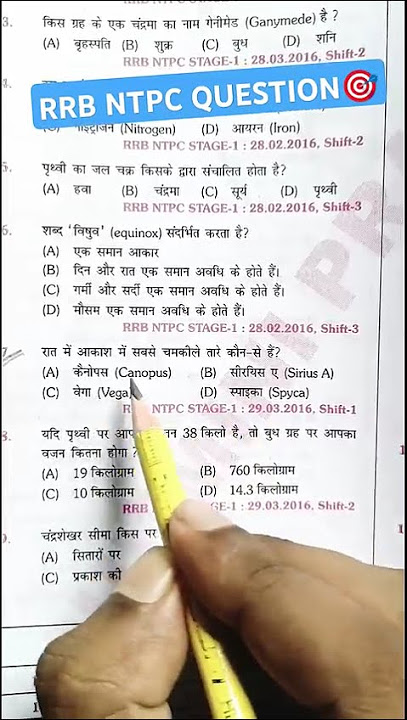 3. किस ग्रह के एक चंद्रमा का नाम गेनीमेड (Ganymede) है ?
(A) बृहस्पति (B) शुक्र (C) बुध (D) शनि
RRB NTPC STAGE-1 : 28.03.2016, Shift-2
RRB NTPC QUESTION🎯
(C) नाइट्रोजन (Nitrogen) (D) आयरन (Iron)
RRB NTPC STAGE-1 : 28.02.2016, Shift-2
5. पृथ्वी का जल चक्र किसके द्वारा संचालित होता है?
(A) हवा (B) चंद्रमा (C) सूर्य (D) पृथ्वी
RRB NTPC STAGE-1 : 28.02.2016, Shift-3
6. शब्द ‘विषुव’ (equinox) संदर्भित करता है?
(A) एक समान आकार
(B) दिन और रात एक समान अवधि के होते हैं।
(C) गर्मी और सर्दी एक समान अवधि के होते हैं।
(D) मौसम एक समान अवधि के होते हैं।
RRB NTPC STAGE-1 : 28.02.2016, Shift-3
7 रात में आकाश में सबसे चमकीले तारे कौन-से हैं?
(A) कैनोपस (Canopus) (B) सीरियस ए (Sirius A)
(C) वेगा (Vega) (D) स्पाइका (Spyca)
NTPC STAGE-1 : 29.03.2016, Shift-1
8. यदि पृथ्वी पर 38 किलो है, तो बुध ग्रह पर आपका
वजन कितना होगा ?
(A) 19 किलोग्राम (B) 760 किलोग्राम
(C) 10 किलोग्राम (D) 14.3 किलोग्राम
RRB GE-1 : 29.03.2016, Shift-2
9. चंद्रशेखर सीमा किस पर
(A) सितारों पर
(C) प्रकाश की